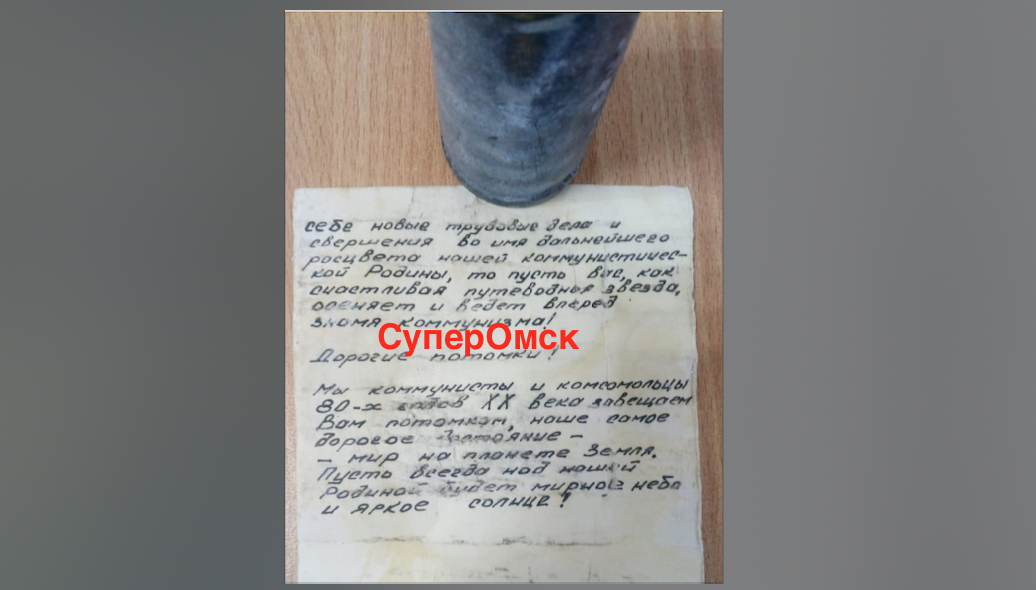 себе новые трудовые дела и
свершения во имя дальнейшего
росцвета нашей коммунистичес-
кой Родины, то пусть вас, как
счастливая путеводная звезда,
осеняет и ведет вперед
знамя коммунизма!
СуперОмск
Дорогие потомки!
Мы коммунисты и комсомольцы
80-х годов XX века завещаем
Вам потомкам, наше самое
дорогое достояние -
- мир на планете Земля.
Пусть всегда над нашей
Родиной будет мирное небо
и яркое солнце!